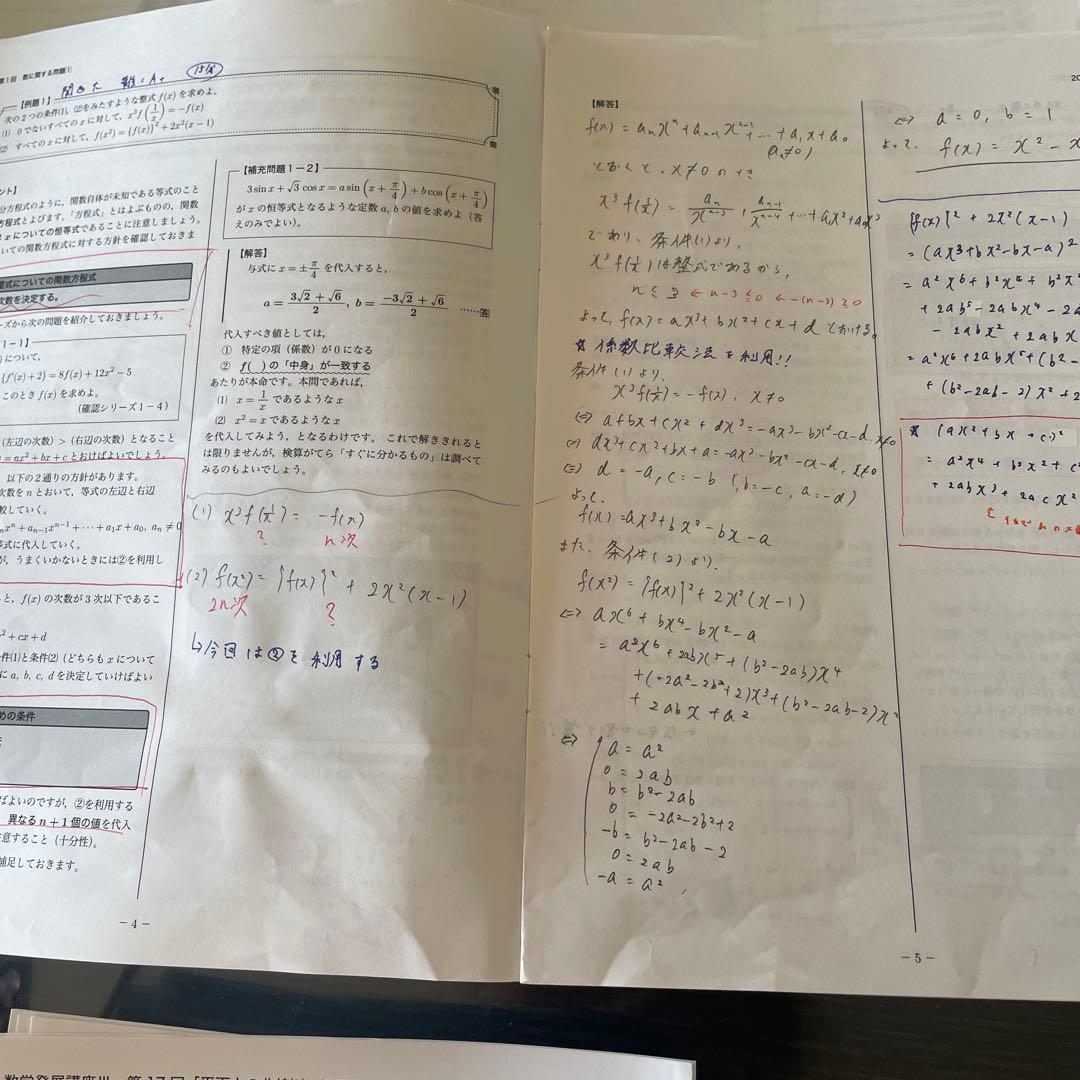 第1回 数に関する問題(1)
15分
【例題1】
次の2つの条件(1), (2)をみたすような整式 f(x) を求めよ.
(1) 0でないすべての x に対して, x³f(1/x) = −f(x)
(2) すべての x に対して, f(x²) = {f(x)}² + 2x²(x−1)
分方程式のように, 関数自体が未知である等式のこと
方程式とよびます.「方程式」とはよぶものの, 関数
xについての恒等式であることに注意しましょう.
いての関数方程式に対する方針を確認しておきま
整式についての関数方程式
次数を決定する。
ーズから次の問題を紹介しておきましょう.
1−1】
について,
{f′(x)+2} = 8f(x)+12x²−5
このとき f(x) を求めよ.
(確認シリーズ1−4)
(左辺の次数) > (右辺の次数) となること
= ax² + bx + c とおけばよいでしょう.
以下の2通りの方針があります.
次数を n とおいて, 等式の左辺と右辺
較していく.
xⁿ + aₙ₋₁xⁿ⁻¹ + ⋯ + a₁x + a₀, aₙ ≠ 0
等式に代入していく.
が, うまくいかないときには②を利用し
と, f(x) の次数が3次以下であるこ
x² + cx + d
件(1)と条件(2) (どちらも x について
に a, b, c, d を決定していけばよい
めの条件
ばよいのですが, ②を利用する
異なる n+1 個の値を代入
注意すること (十分性).
補足しておきます.
【補充問題1−2】
3 sin x + √3 cos x = a sin (x + π/4) + b cos (x + π/4)
が x の恒等式となるような定数 a, b の値を求めよ (答
えのみでよい).
【解答】
与式に x = ±π/4 を代入すると,
a = (3√2 + √6)/2, b = (−3√2 + √6)/2 ……(答)
代入すべき値としては,
① 特定の項 (係数) が0になる
② f( ) の「中身」が一致する
あたりが本命です. 本問であれば,
(1) x = 1/x であるような x
(2) x² = x であるような x
を代入してみよう, となるわけです. これで解ききれると
は限りませんが, 検算がてら「すぐに分かるもの」は調べて
みるのもよいでしょう.
(1) x³f(1/x) = −f(x)
? n次
(2) f(x²) = {f(x)}² + 2x²(x−1)
2n次 ?
↳今回は②を利用する
−4−
【解答】
f(x) = aₙxⁿ + aₙ₋₁xⁿ⁻¹ + … + a₁x + a₀
(aₙ≠0)
とおくと、x≠0のとき
x³f(1/x) = aₙ/xⁿ⁻³ + aₙ₋₁/xⁿ⁻⁴ + … + a₁x² + a₀x³
であり、条件(1)より、
x³f(1/x)は整式であるから,
n ≤ 3 ← n−3 ≤ 0 ← −(n−3) ≥ 0
よって, f(x) = ax³+bx²+cx+d とおける.
☆ 係数比較法を利用!!
条件(1)より
x³f(1/x) = −f(x), x≠0
⇔ a+bx+cx²+dx³ = −ax³−bx²−cx−d, x≠0
⇔ dx³+cx²+bx+a = −ax³−bx²−cx−d, x≠0
⇔ d = −a, c = −b (, b = −c, a = −d)
よって、
f(x) = ax³+bx²−bx−a
また、条件(2)より、
f(x²) = {f(x)}² + 2x²(x−1)
⇔ ax⁶ + bx⁴ − bx² − a
= a²x⁶ + 2abx⁵ + (b²−2ab)x⁴
+(−2a²−2b²+2)x³+(b²−2ab−2)x²
+ 2abx + a²
⇔ a = a²
0 = 2ab
b = b²−2ab
0 = −2a²−2b²+2
−b = b²−2ab−2
0 = 2ab
−a = a² ,
−5−
⇔ a = 0, b = 1
よって, f(x) = x² − x
{f(x)}² + 2x²(x−1)
= (ax³+bx²−bx−a)²
= a²x⁶+b²x⁴+b²x²
+ 2abx⁵ − 2abx⁴ − 2a
− 2abx² + 2abx
= a²x⁶+2abx⁵+(b²−
+ (b²−2ab−2)x²+2
☆ (ax²+bx+c)²
= a²x⁴ + b²x² + c²
+2abx³ + 2acx²
数学発展講座Ⅲ 第17回